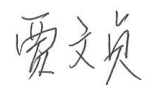 贾文贞